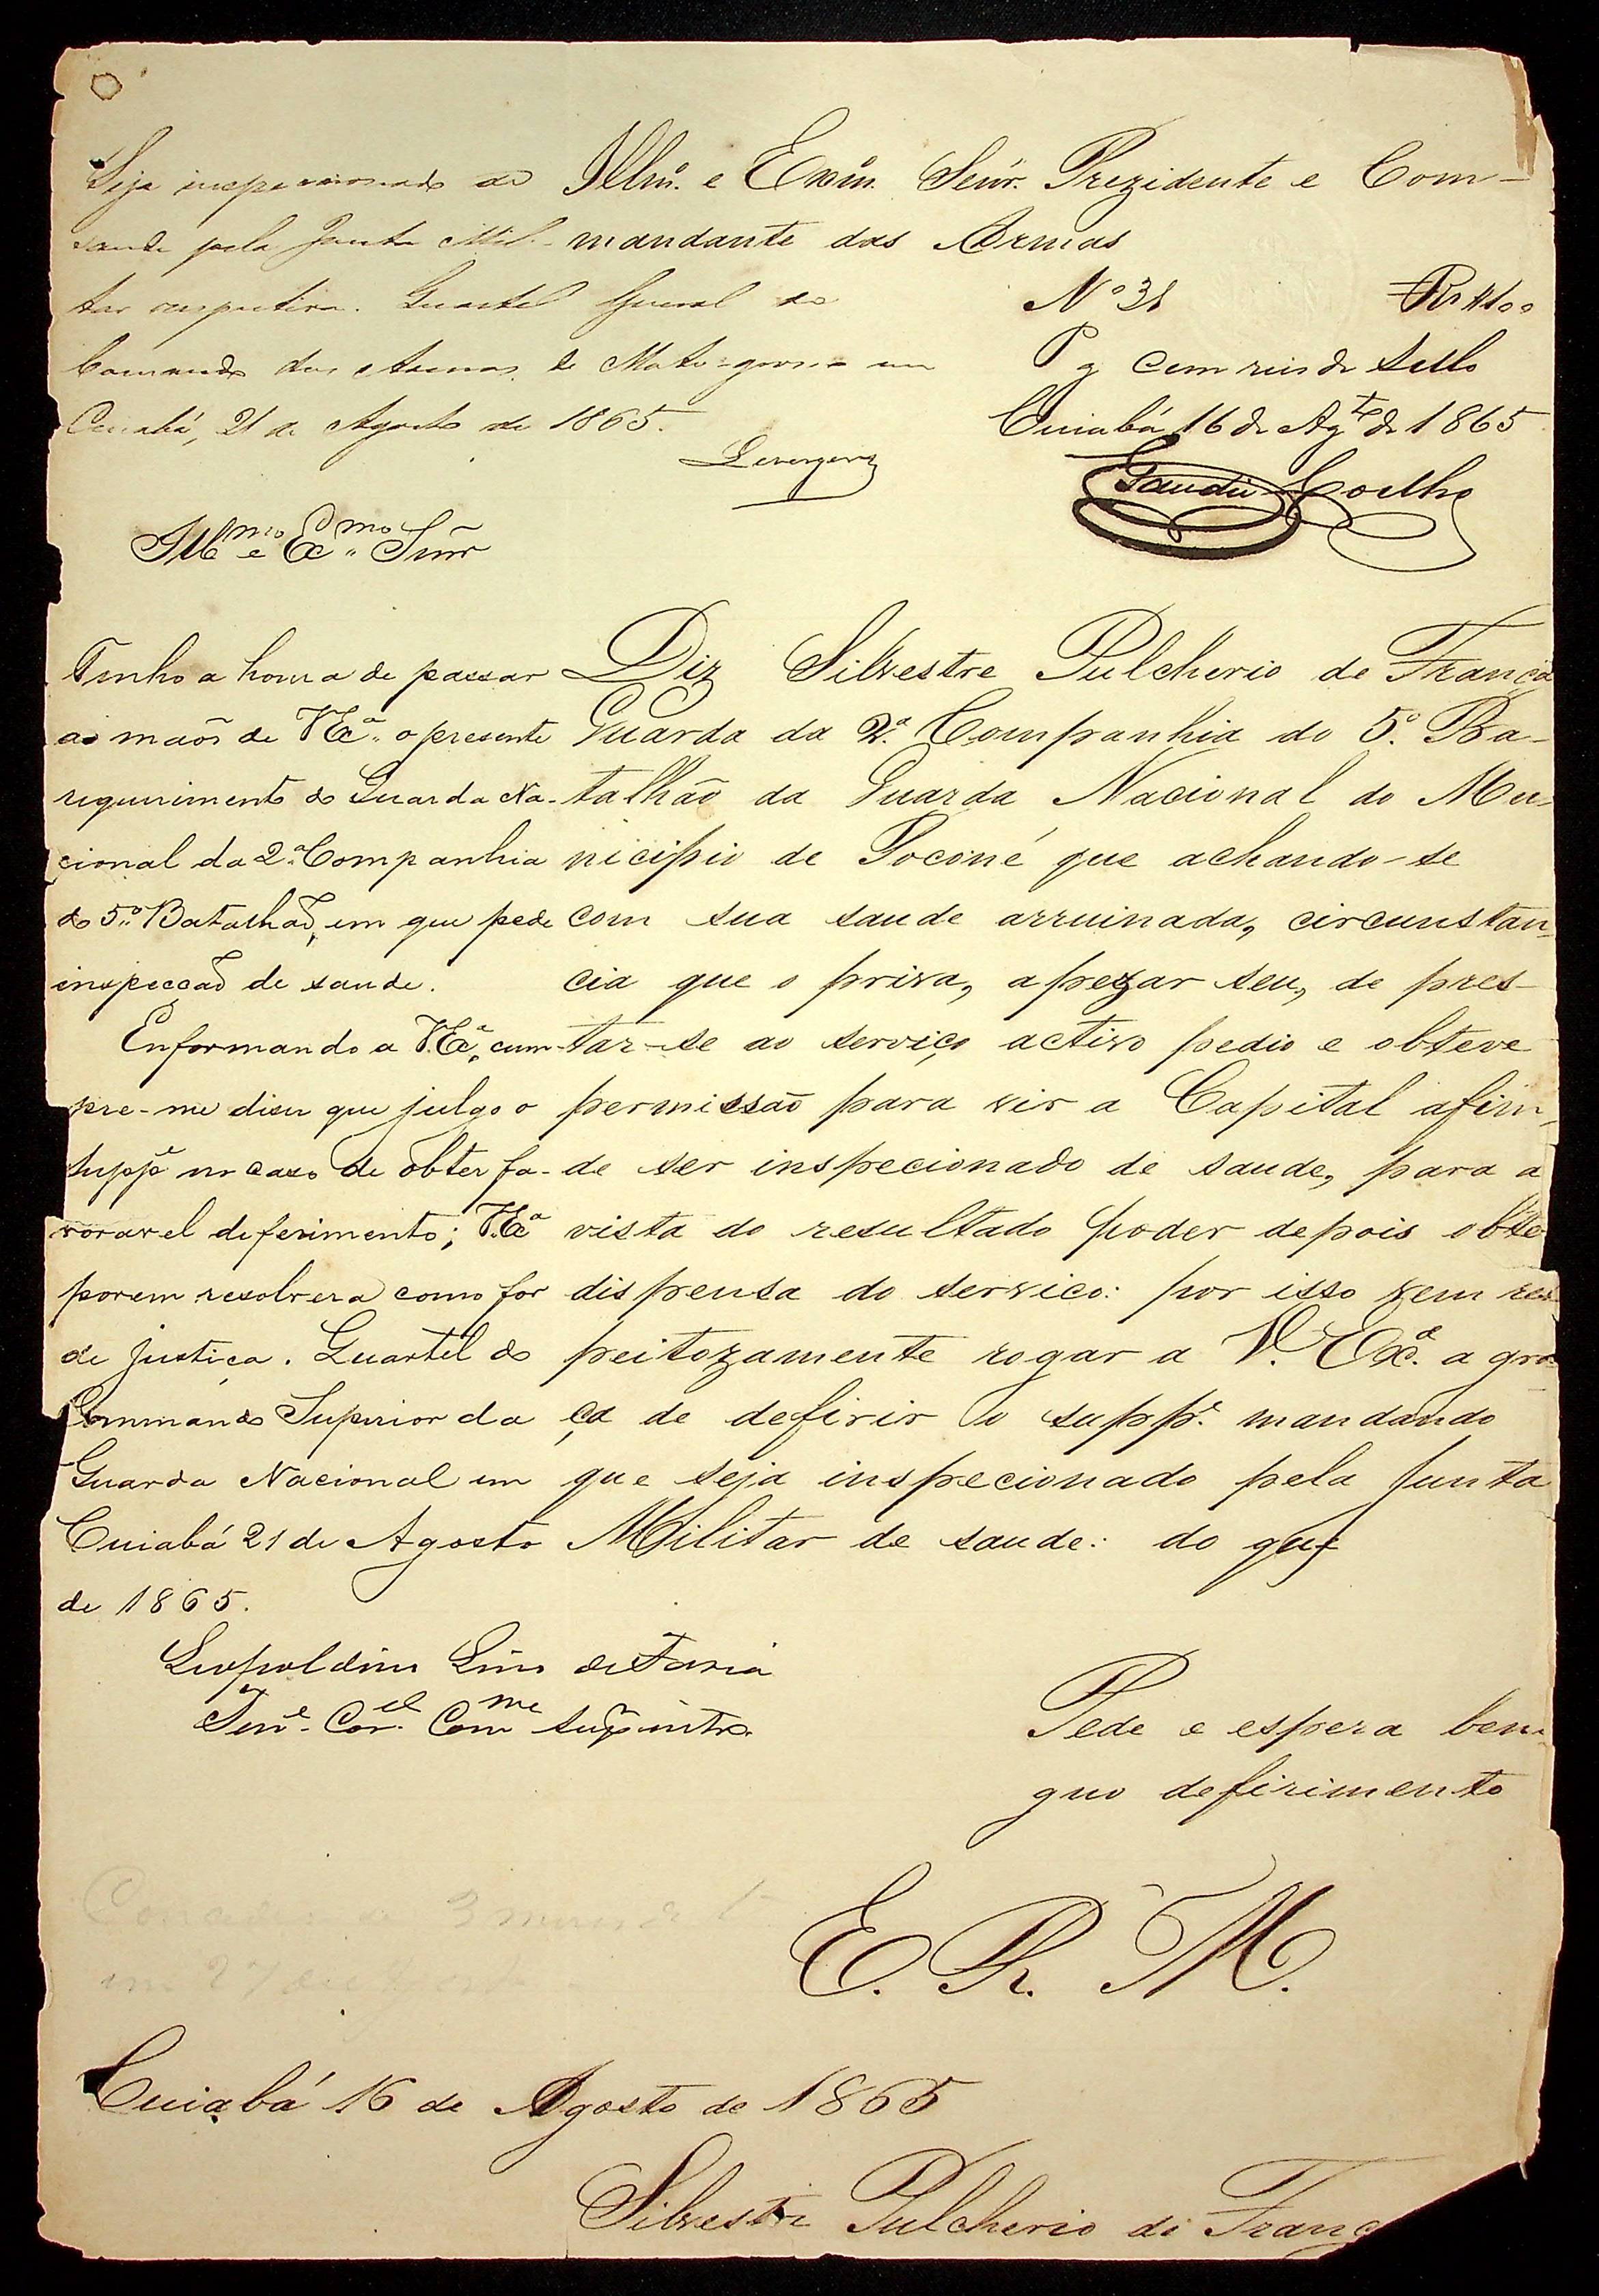 Illm.º e Exm.º Senr. Prezidente e Com-
mandante das Armas
Seja inspeccionado de
saude pela Junta Mili-
tar respectiva. Quartel General do
Commando das Armas de Mato-grosso em
Cuiabá, 21 de Agosto de 1865.
Leverger
Nº 31 Rs 100
Pg cem reis de Sello
Cuiabá 16 de Agto de 1865
Gaudie Coelho
Illmo e Exmo Sñr
Tenho a honra de passar
as maõs de VExª o presente
requerimento do Guarda Na-
cional da 2ª Companhia
do 5º Batalhaõ, em que pede
inspecçaõ de saude.
Enformando a V.Exª, cum-
pre-me diser que julgo o
suppe no caso de obter fa-
voravel deferimento; V.Exª
porem resolvera como for
de justiça. Quartel do
Commando Superior da
Guarda Nacional em
Cuiabá 21 de Agosto
de 1865.
Leopoldino Lino de Faria
Tene Corel Comme Sup interº
Diz Silvestre Pulcherio de França
Guarda da 2ª Companhia do 5º Ba-
talhão da Guarda Nacional do Mu-
nicipio de Poconé que achando-se
com sua saude arruinada, circunstan-
cia que o priva, apezar seu, de pres-
tar-se ao serviço activo pedio e obteve
permissão para vir a Capital afim
de ser inspecionado de saude, para a
vista do resultado poder depois obte
dispensa do serviço: por isso vem res
peitozamente rogar a V. Exª. a gra
ça de defirir o suppe. mandando
que seja inspecionado pela Junta
Militar de saude: do que
Pede e espera beni
gno defirimento
E. R. M.
Cuiabá 16 de Agosto de 1865
Silvestre Pulcherio de Franç